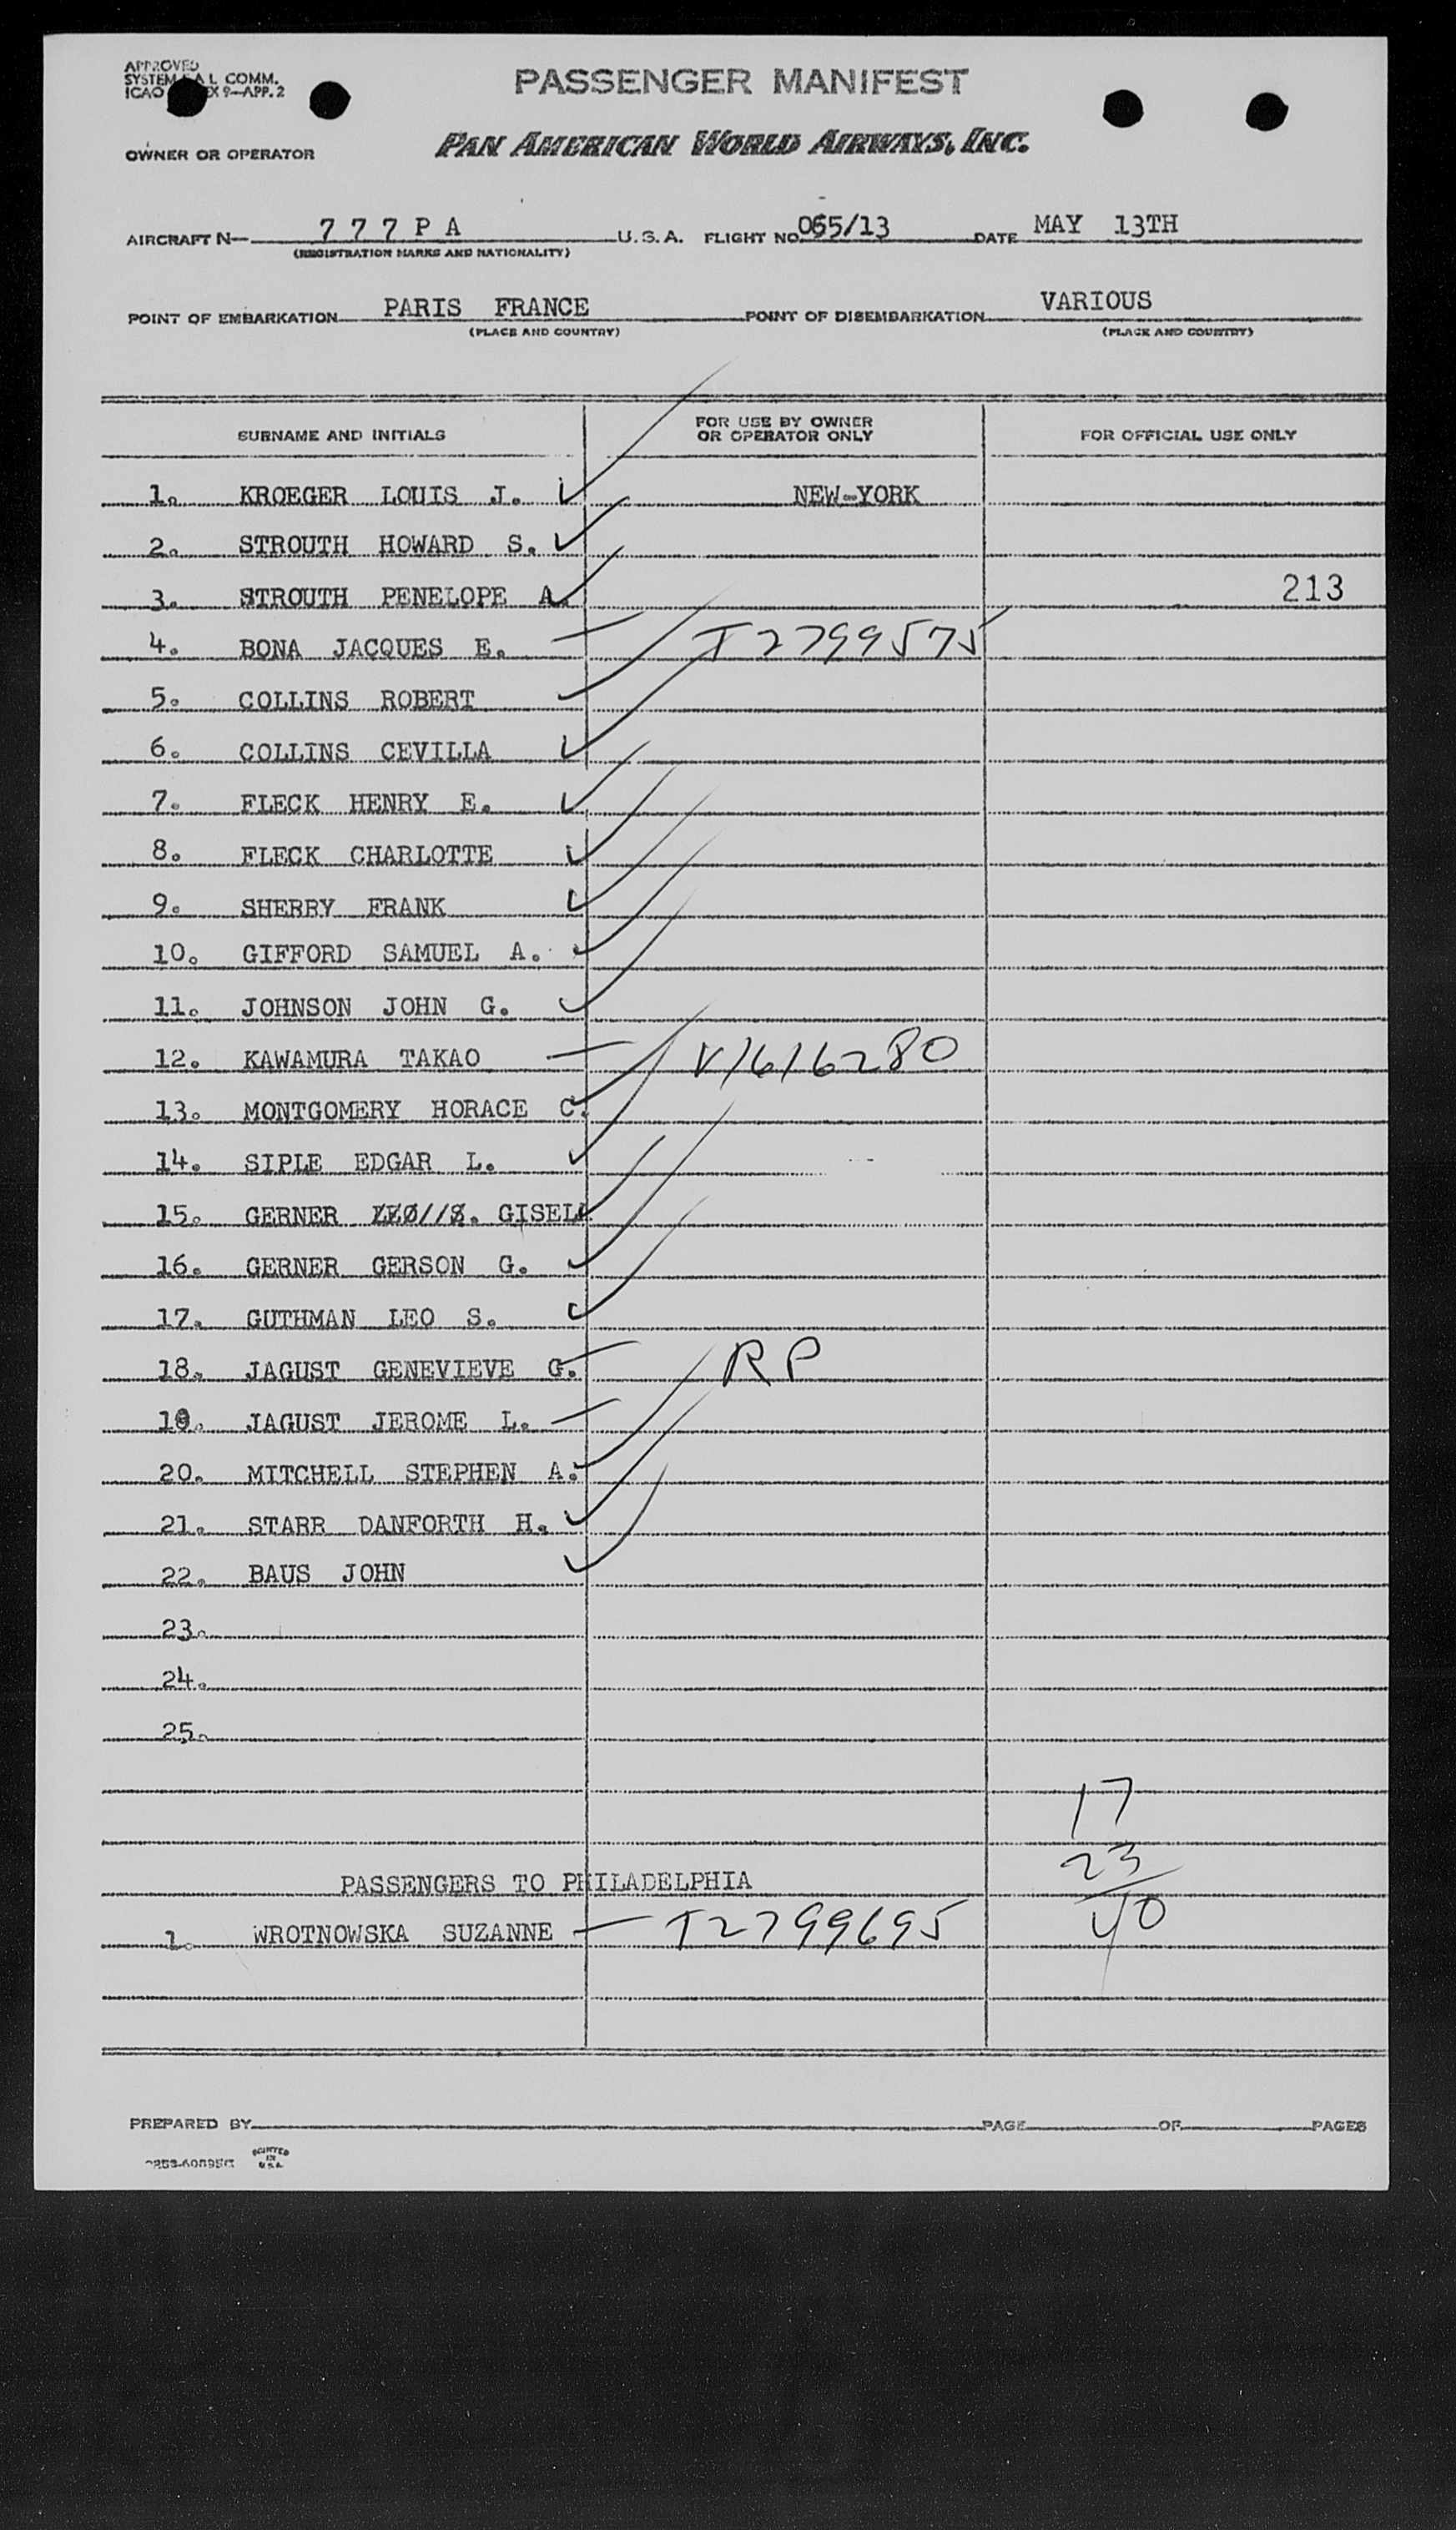 APPROVED
SYSTEM L COMM.
ICAO X 9-APP. 2
PASSENGER MANIFEST
OWNER OR OPERATOR PAN AMERICAN WORLD AIRWAYS, INC.
AIRCRAFT N- 7 7 7 P A U.S.A. FLIGHT NO. 065/13 DATE MAY 13TH
(REGISTRATION MARKS AND NATIONALITY)
POINT OF EMBARKATION PARIS FRANCE POINT OF DISEMBARKATION VARIOUS
(PLACE AND COUNTRY) (PLACE AND COUNTRY)
SURNAME AND INITIALS FOR USE BY OWNER OR OPERATOR ONLY FOR OFFICIAL USE ONLY
1. KROEGER LOUIS J. NEW-YORK
2. STROUTH HOWARD S.
3. STROUTH PENELOPE A. 213
4. BONA JACQUES E. T2799575
5. COLLINS ROBERT
6. COLLINS CEVILLA
7. FLECK HENRY E.
8. FLECK CHARLOTTE
9. SHERRY FRANK
10. GIFFORD SAMUEL A.
11. JOHNSON JOHN G.
12. KAWAMURA TAKAO V1616280
13. MONTGOMERY HORACE C.
14. SIPLE EDGAR L.
15. GERNER GISELA
16. GERNER GERSON G.
17. GUTHMAN LEO S.
18. JAGUST GENEVIEVE G. RP
19. JAGUST JEROME L.
20. MITCHELL STEPHEN A.
21. STARR DANFORTH H.
22. BAUS JOHN
23.
24.
25.
17
23
PASSENGERS TO PHILADELPHIA
40
1. WROTNOWSKA SUZANNE T2799695
PREPARED BY PAGE OF PAGES
PRINTED
IN
U.S.A.